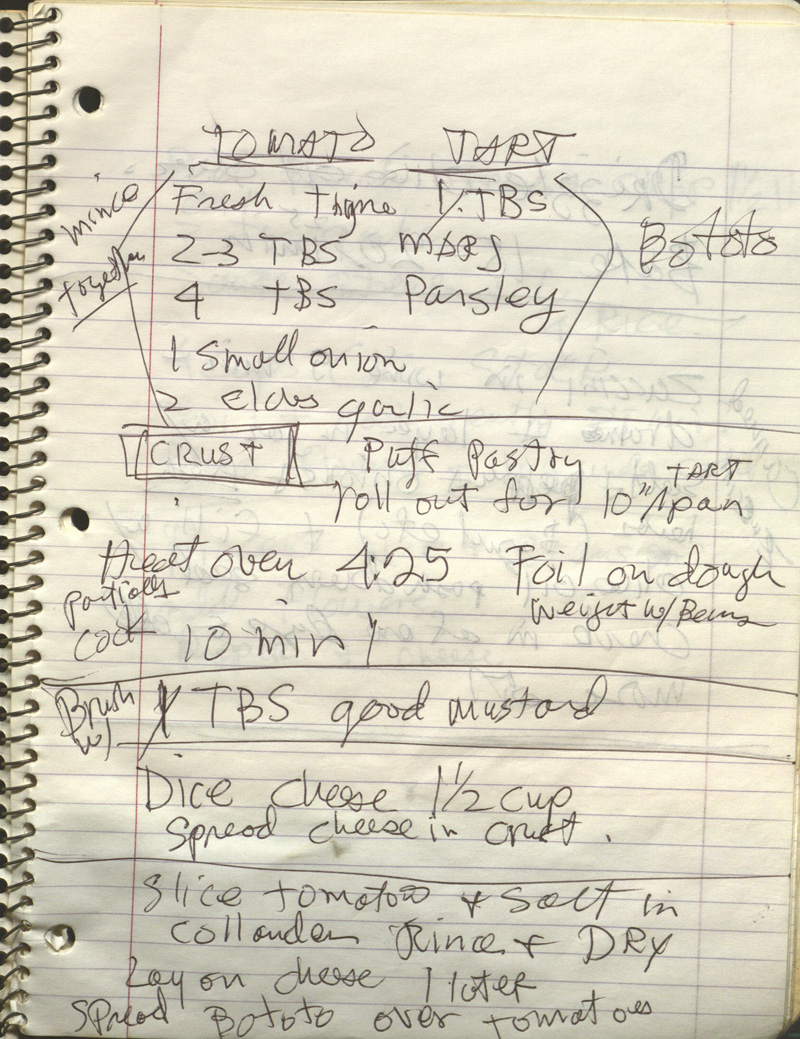 TOMATO TART
mince together
Fresh thyme 1 TBS
2-3 TBS
4 TBS Parsley
Bototo
1 small onion
2 garlic
CRUST Puff Pastry
roll out for 10" TART pan
Heat oven 425 Foil on dough
partially weight w/ Beans
cook 10 min
Brush w/ 1 TBS good mustard
Dice cheese 1 1/2 cup
Spread cheese in crust.
Slice tomatoes + Salt in
Collander Rince + DRY
Lay on cheese 1
Spread Bototo over tomatoes